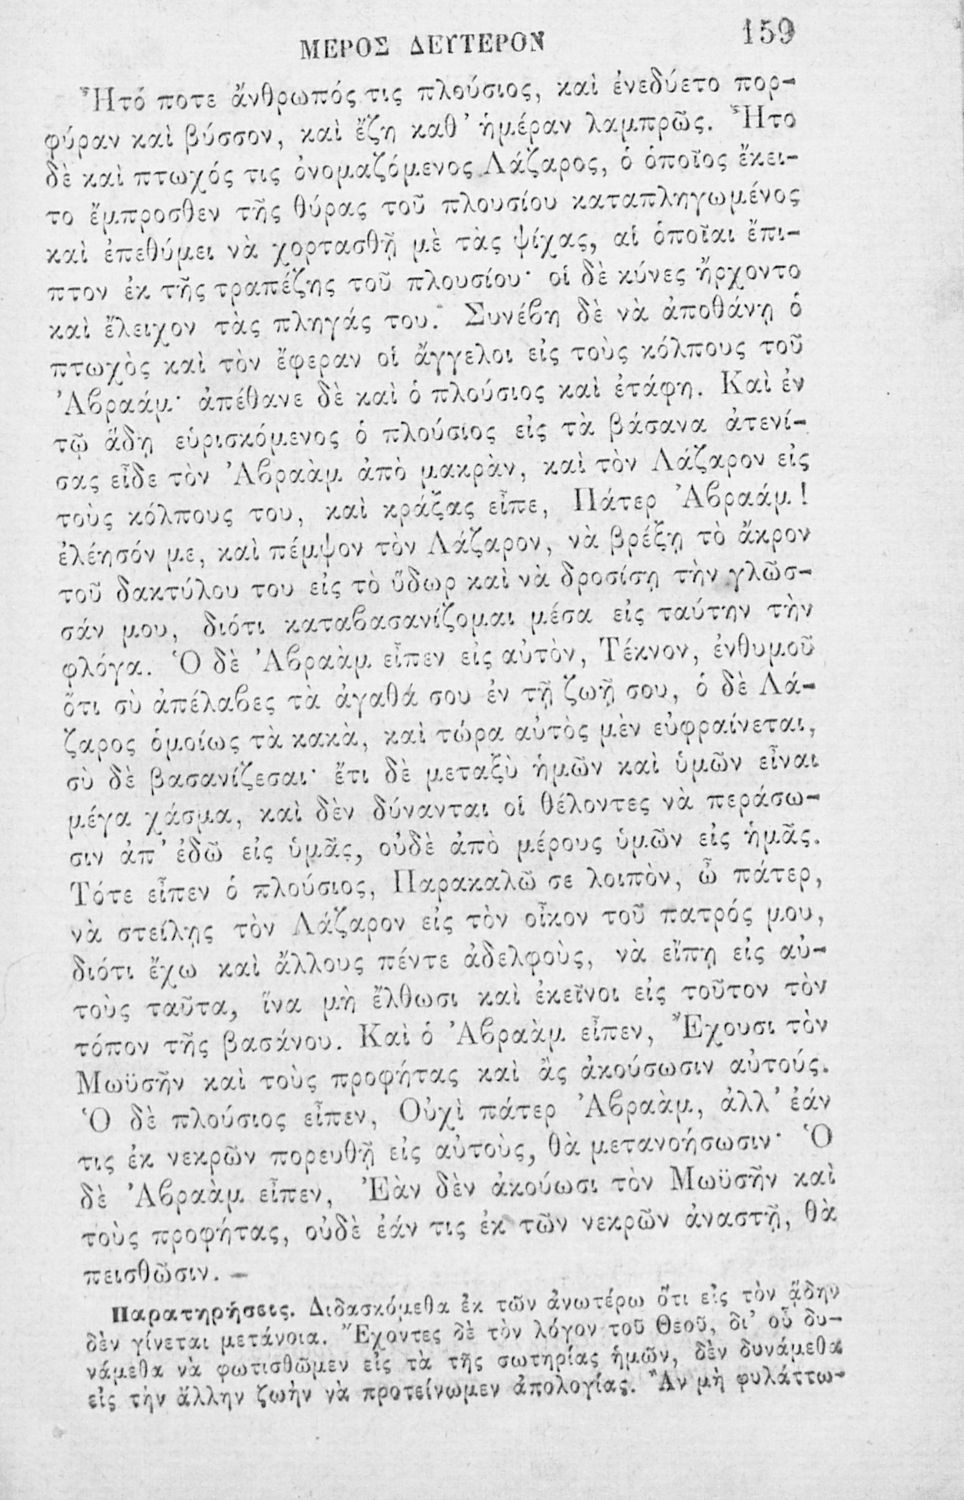 ΜΕΡΟΣ ΔΕΥΤΕΡΟΝ
159
Ἦτό ποτε ἄνθρωπός τις πλούσιος, καὶ ἐνεδύετο πορ-
φύραν καὶ βύσσον, καὶ ἔζη καθ᾿ ἡμέραν λαμπρῶς. Ἦτο
δὲ καὶ πτωχός τις ὀνομαζόμενος Λάζαρος, ὁ ὁποῖος ἔκει-
το ἔμπροσθεν τῆς θύρας τοῦ πλουσίου καταπληγωμένος
καὶ ἐπεθύμει νὰ χορτασθῇ μὲ τὰς ψίχας, αἱ ὁποῖαι ἔπι-
πτον ἐκ τῆς τραπέζης τοῦ πλουσίου· οἱ δὲ κύνες ἤρχοντο
καὶ ἔλειχον τὰς πληγάς του. Συνέβη δὲ νὰ ἀποθάνῃ ὁ
πτωχὸς καὶ τὸν ἔφεραν οἱ ἄγγελοι εἰς τοὺς κόλπους τοῦ
Ἀβραάμ· ἀπέθανε δὲ καὶ ὁ πλούσιος καὶ ἐτάφη. Καὶ ἐν
τῷ ἅδῃ εὑρισκόμενος ὁ πλούσιος εἰς τὰ βάσανα ἀτενί-
σας εἶδε τὸν Ἀβραὰμ ἀπὸ μακρὰν, καὶ τὸν Λάζαρον εἰς
τοὺς κόλπους του, καὶ κράξας εἶπε, Πάτερ Ἀβραάμ!
ἐλέησόν με, καὶ πέμψον τὸν Λάζαρον, νὰ βρέξῃ τὸ ἄκρον
τοῦ δακτύλου του εἰς τὸ ὕδωρ καὶ νὰ δροσίσῃ τὴν γλῶσ-
σάν μου, διότι καταβασανίζομαι μέσα εἰς ταύτην τὴν
φλόγα. Ὁ δὲ Ἀβραὰμ εἶπεν εἰς αὐτὸν, Τέκνον, ἐνθυμοῦ
ὅτι σὺ ἀπέλαβες τὰ ἀγαθά σου ἐν τῇ ζωῇ σου, ὁ δὲ Λά-
ζαρος ὁμοίως τὰ κακὰ, καὶ τώρα αὐτὸς μὲν εὐφραίνεται,
σὺ δὲ βασανίζεσαι· ἔτι δὲ μεταξὺ ἡμῶν καὶ ὑμῶν εἶναι
μέγα χάσμα, καὶ δὲν δύνανται οἱ θέλοντες νὰ περάσω-
σιν ἀπ᾿ ἐδῶ εἰς ὑμᾶς, οὐδὲ ἀπὸ μέρους ὑμῶν εἰς ἡμᾶς.
Τότε εἶπεν ὁ πλούσιος, Παρακαλῶ σε λοιπὸν, ὦ πάτερ,
νὰ στείλῃς τὸν Λάζαρον εἰς τὸν οἶκον τοῦ πατρός μου,
διότι ἔχω καὶ ἄλλους πέντε ἀδελφοὺς, νὰ εἴπῃ εἰς αὐ-
τοὺς ταῦτα, ἵνα μὴ ἔλθωσι καὶ ἐκεῖνοι εἰς τοῦτον τὸν
τόπον τῆς βασάνου. Καὶ ὁ Ἀβραὰμ εἶπεν, Ἔχουσι τὸν
Μωϋσῆν καὶ τοὺς προφήτας καὶ ἂς ἀκούσωσιν αὐτούς.
Ὁ δὲ πλούσιος εἶπεν, Οὐχὶ πάτερ Ἀβραὰμ, ἀλλ᾿ ἐάν
τις ἐκ νεκρῶν πορευθῇ εἰς αὐτοὺς, θὰ μετανοήσωσιν· Ὁ
δὲ Ἀβραὰμ εἶπεν, Ἐὰν δὲν ἀκούωσι τὸν Μωϋσῆν καὶ
τοὺς προφήτας, οὐδὲ ἐάν τις ἐκ τῶν νεκρῶν ἀναστῇ, θὰ
πεισθῶσιν. —
Παρατηρήσεις. Διδασκόμεθα ἐκ τῶν ἀνωτέρω ὅτι εἰς τὸν ᾅδην
δὲν γίνεται μετάνοια. Ἔχοντες δὲ τὸν λόγον τοῦ Θεοῦ, δι᾿ οὗ δυ-
νάμεθα νὰ φωτισθῶμεν εἰς τὰ τῆς σωτηρίας ἡμῶν, δὲν δυνάμεθα
εἰς τὴν ἄλλην ζωὴν νὰ προτείνωμεν ἀπολογίας. Ἂν μὴ φυλάττω-